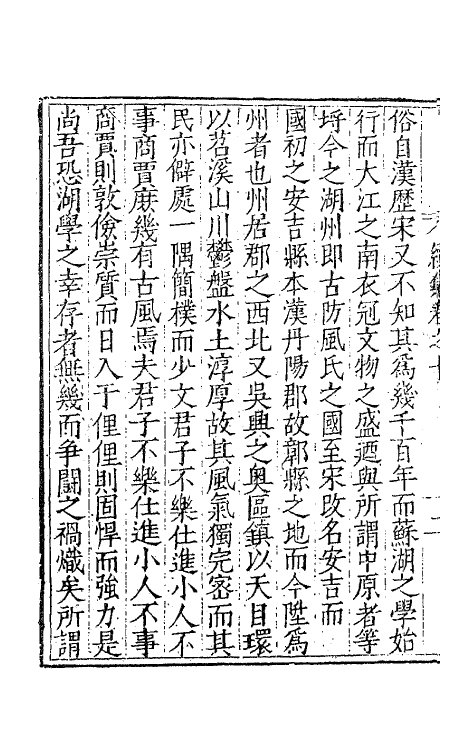 俗自漢歷宋又不知其爲幾千百年而蘇湖之學始
行而大江之南衣冠文物之盛遒與所謂中原者等
埒今之湖州即古防風氏之國至宋改名安吉而
國初之安吉縣本漢丹陽郡故鄣縣之地而今陞爲
州者也州居郡之西北又吳興之奧區鎮以天目環
以苕溪山川鬱盤水土淳厚故其風氣獨完宻而其
民亦僻處一隅簡樸而少文君子不樂仕進小人不
事商賈庶幾有古風焉夫君子不樂仕進小人不事
商賈則敦儉崇質而日入于俚俚則固悍而強力是
尚吾恐湖學之幸存者無幾而爭鬪之禍熾矣所謂